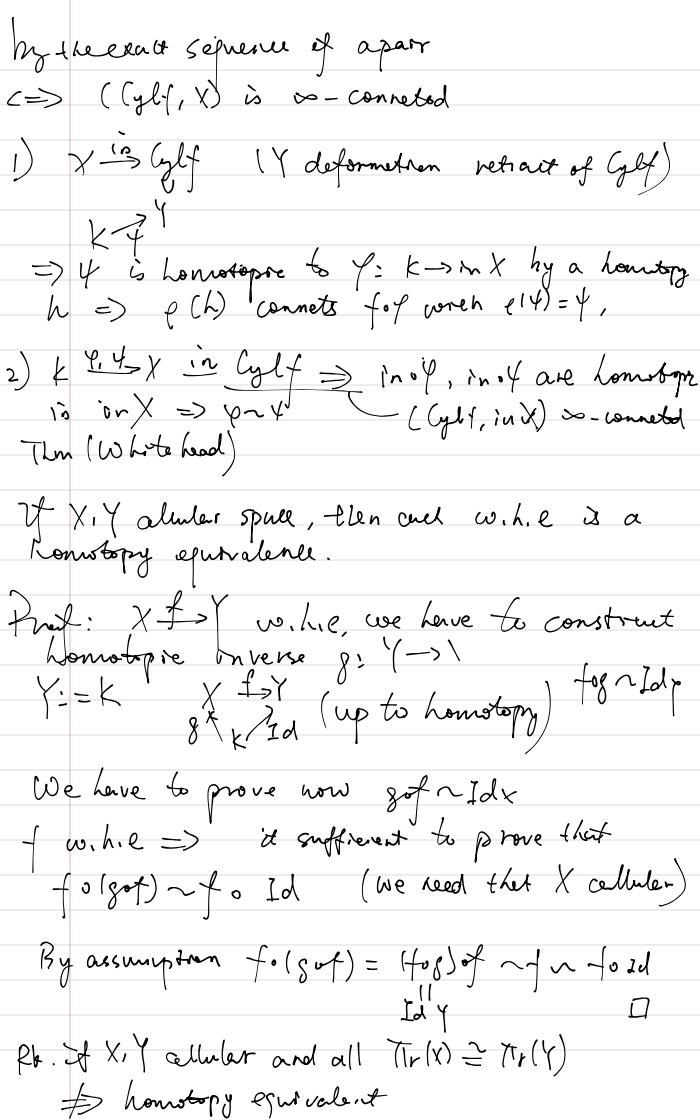 by the exact sequence of a pair
<=> (Cyl f, X) is ∞-conneted
1) X in→ Cyl f (Y deformetion retract of Cyl f)
∪
Y
K ψ↗
=> ψ is homotopic to φ: K → in X by a homotopy
h => ρ(h) connets f∘φ with ρ(ψ) = ψ,
2) K φ,ψ→ X in Cyl f => in∘φ, in∘ψ are homotopic
is in X => φ ~ ψ (Cyl f, in X) ∞-conneted
Thm (Whitehead)
If X, Y cellular space, then each w.h.e is a
homotopy equivalence.
Proof: X f→ Y w.h.e, we have to construct
homotopic inverse g: Y → X
Y := K X f→ Y (up to homotopy) f∘g ~ Id_Y
g ↖ K ↗ Id
We have to prove now g∘f ~ Id_X
f w.h.e => it suffient to prove that
f∘(g∘f) ~ f∘Id (we need that X cellular)
By assumption f∘(g∘f) = (f∘g)∘f ~ f ~ f∘Id
Id Y □
Rk. if X, Y cellular and all π_r(X) ≅ π_r(Y)
≠> homotopy equivalent